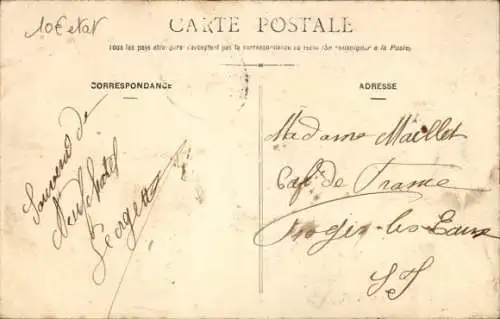 10€ etat
CARTE POSTALE
Tous les pays étrangers n'acceptent pas la correspondance au recto (Se renseigner à la Poste)
CORRESPONDANCE
ADRESSE
Souvenir de
Neufchatel
Georgette
Madame Maillet
Café de France
Forges-les-Eaux
S. I.